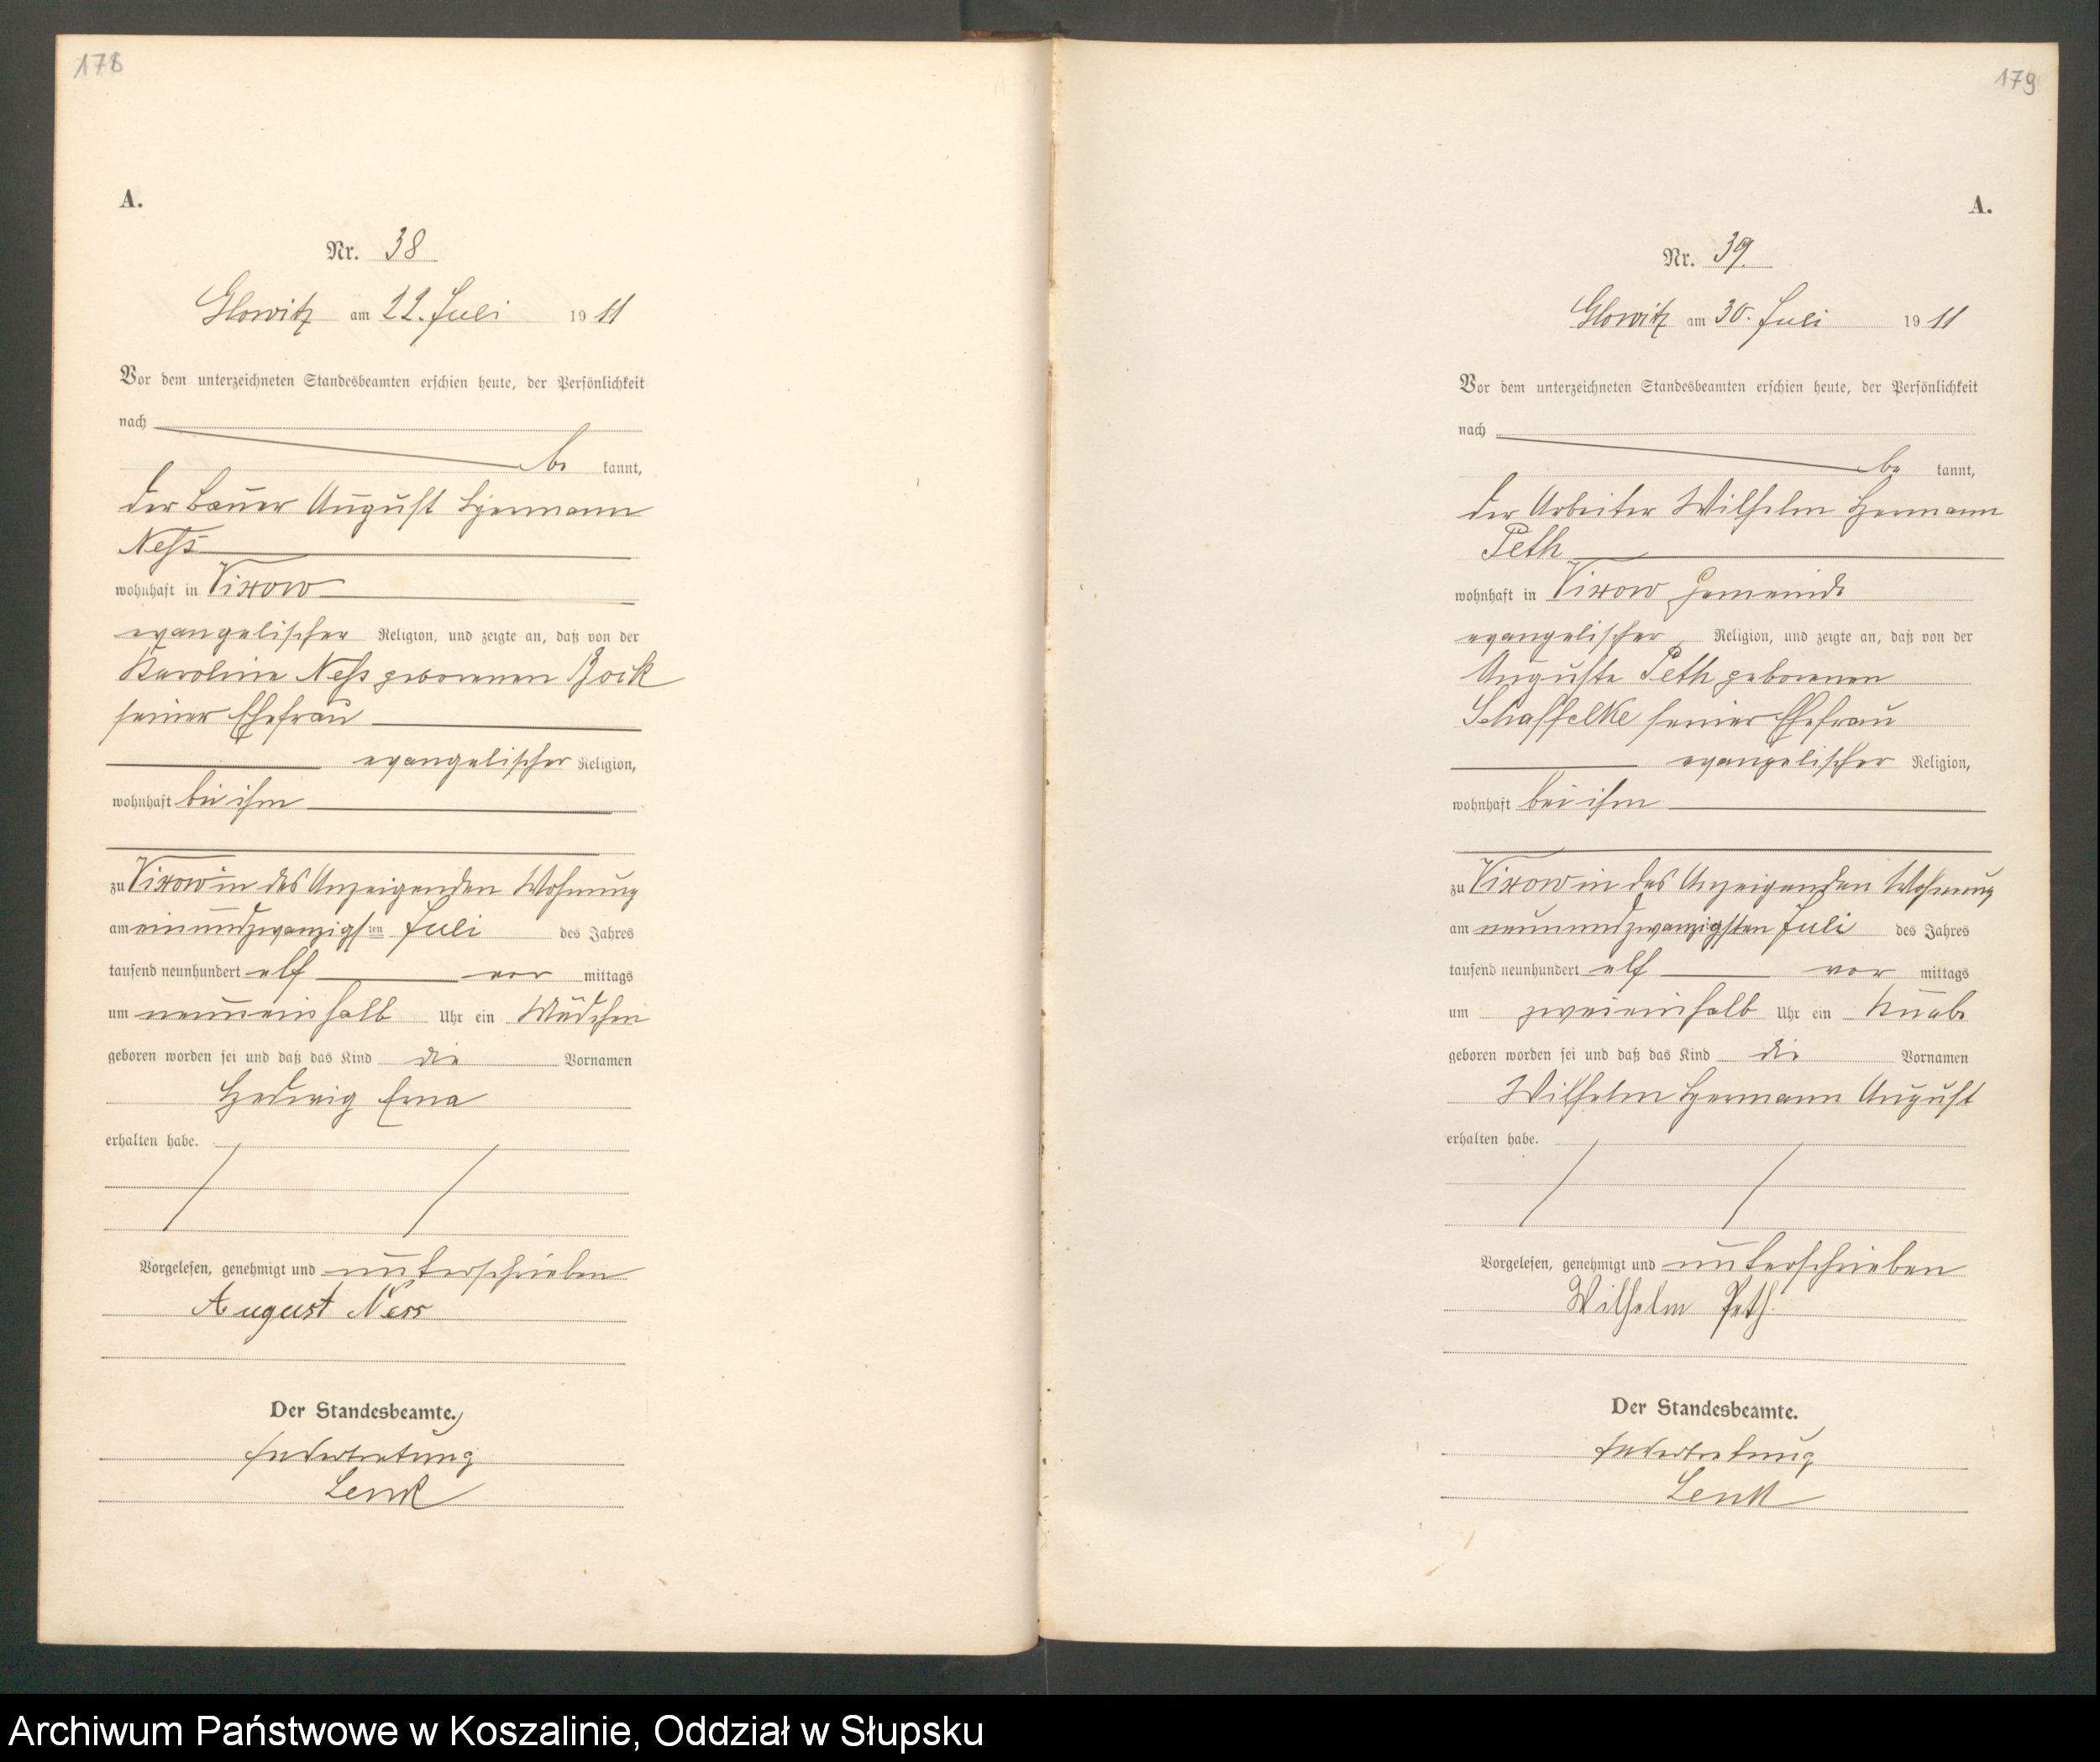 178
A.
Nr. 38
Glowitz am 22. Juli 1911
Vor dem unterzeichneten Standesbeamten erschien heute, der Persönlichkeit
nach
be kannt,
der Bauer August Hermann
Neß
wohnhaft in Vixow
evangelischer Religion, und zeigte an, daß von der
Karoline Neß geborenen Bock
seiner Ehefrau
evangelischer Religion,
wohnhaft bei ihm
zu Vixow in des Anzeigenden Wohnung
am einundzwanzigsten Juli des Jahres
tausend neunhundert elf vor mittags
um neuneinhalb Uhr ein Mädchen
geboren worden sei und daß das Kind die Vornamen
Hedwig Erna
erhalten habe.
Vorgelesen, genehmigt und unterschrieben
August Ness
Der Standesbeamte.
In Vertretung
Lenk
179
A.
Nr. 39.
Glowitz am 30. Juli 1911
Vor dem unterzeichneten Standesbeamten erschien heute, der Persönlichkeit
nach
be kannt,
der Arbeiter Wilhelm Hermann
Peth
wohnhaft in Vixow Gemeinde
evangelischer Religion, und zeigte an, daß von der
Auguste Peth geborenen
Schaffelke seiner Ehefrau
evangelischer Religion,
wohnhaft bei ihm
zu Vixow in des Anzeigenden Wohnung
am neunundzwanzigsten Juli des Jahres
tausend neunhundert elf vor mittags
um zweieinhalb Uhr ein Knabe
geboren worden sei und daß das Kind die Vornamen
Wilhelm Hermann August
erhalten habe.
Vorgelesen, genehmigt und unterschrieben
Wilhelm Peth.
Der Standesbeamte.
In Vertretung
Lenk
Archiwum Państwowe w Koszalinie, Oddział w Słupsku